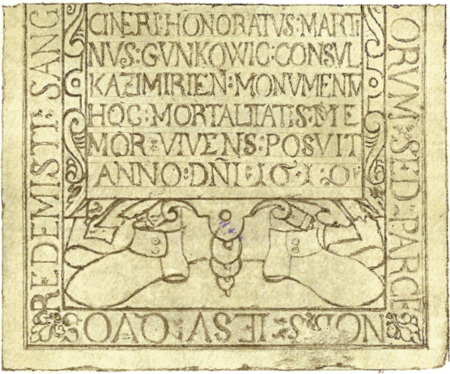 CINERI·HONORATVS·MARTI
NVS·GVNKOWIC·CONSVL
KAZIMIRIEN·MONVMENTV
HOC·MORTALITATIS·ME
MOR·VIVENS·POSVIT
ANNO·DÑI·1610
ORVM·SED·PARCE
NOBIS·IESV·QVO
REDEMISTI·SANG